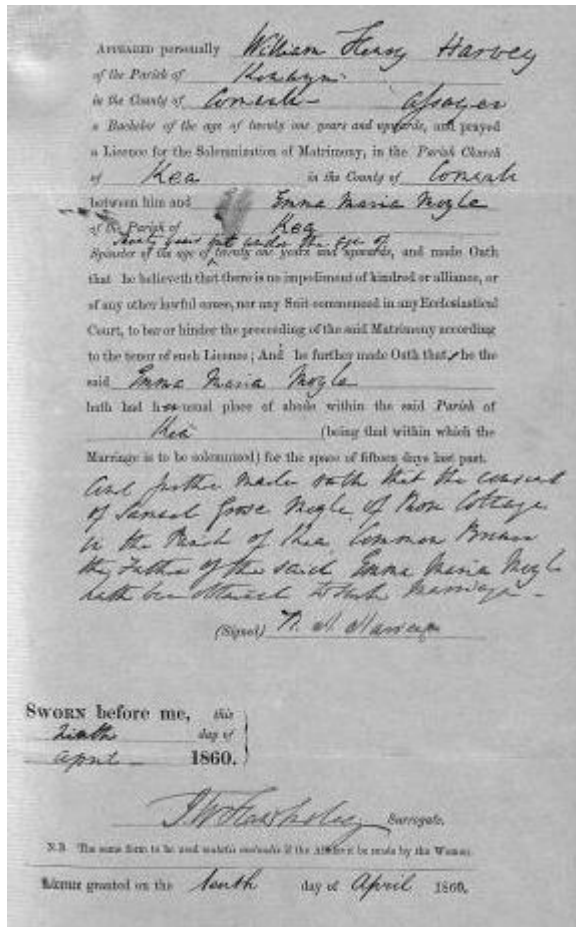 APPEARED personally William Henry Harvey
of the Parish of Kenwyn
in the County of Cornwall Assayer
a Bachelor of the age of twenty one years and upwards, and prayed
a Licence for the Solemnization of Matrimony, in the Parish Church
of Kea in the County of Cornwall
between him and Emma Maria Moyle
of the Parish of Kea
Twenty years but under the age of
Spinster of the age of twenty one years and upwards, and made Oath
that he believeth that there is no impediment of kindred or alliance, or
of any other lawful cause, nor any Suit commenced in any Ecclesiastical
Court, to bar or hinder the proceeding of the said Matrimony according
to the tenor of such Licence; And he further made Oath that she the
said Emma Maria Moyle
hath had her usual place of abode within the said Parish of
Kea (being that within which the
Marriage is to be solemnized) for the space of fifteen days last past.
And further made oath that the consent
of Samuel Grose Moyle of Cottage
in the Parish of Kea Common Brewer
the Father of the said Emma Maria Moyle
hath been obtained to such Marriage -
(Signed) W. H. Harvey
SWORN before me, this
ninth day of
April 1860.
Surrogate.
N.B. The same form to be used mutatis mutandis if the Affidavit be made by the Woman.
Licence granted on the tenth day of April 1860.